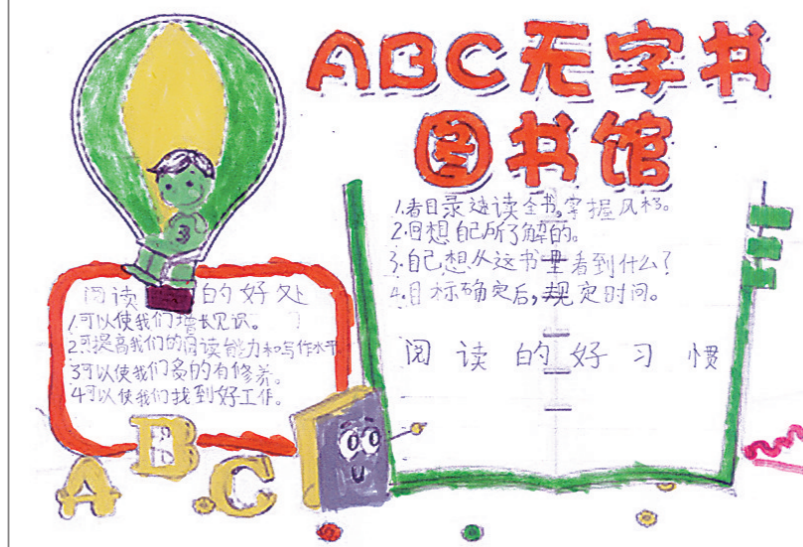 ABC无字书
图书馆
1.看目录速读全书,掌握风格。
2.回想自己所了解的。
3.自己想从这书里看到什么?
4.目标确定后,规定时间。
阅读的好习惯
阅读的好处
1.可以使我们增长见识。
2.可提高我们的阅读能力和写作水平
3可以使我们多的有修养。
4可以使我们找到好工作。
ABC